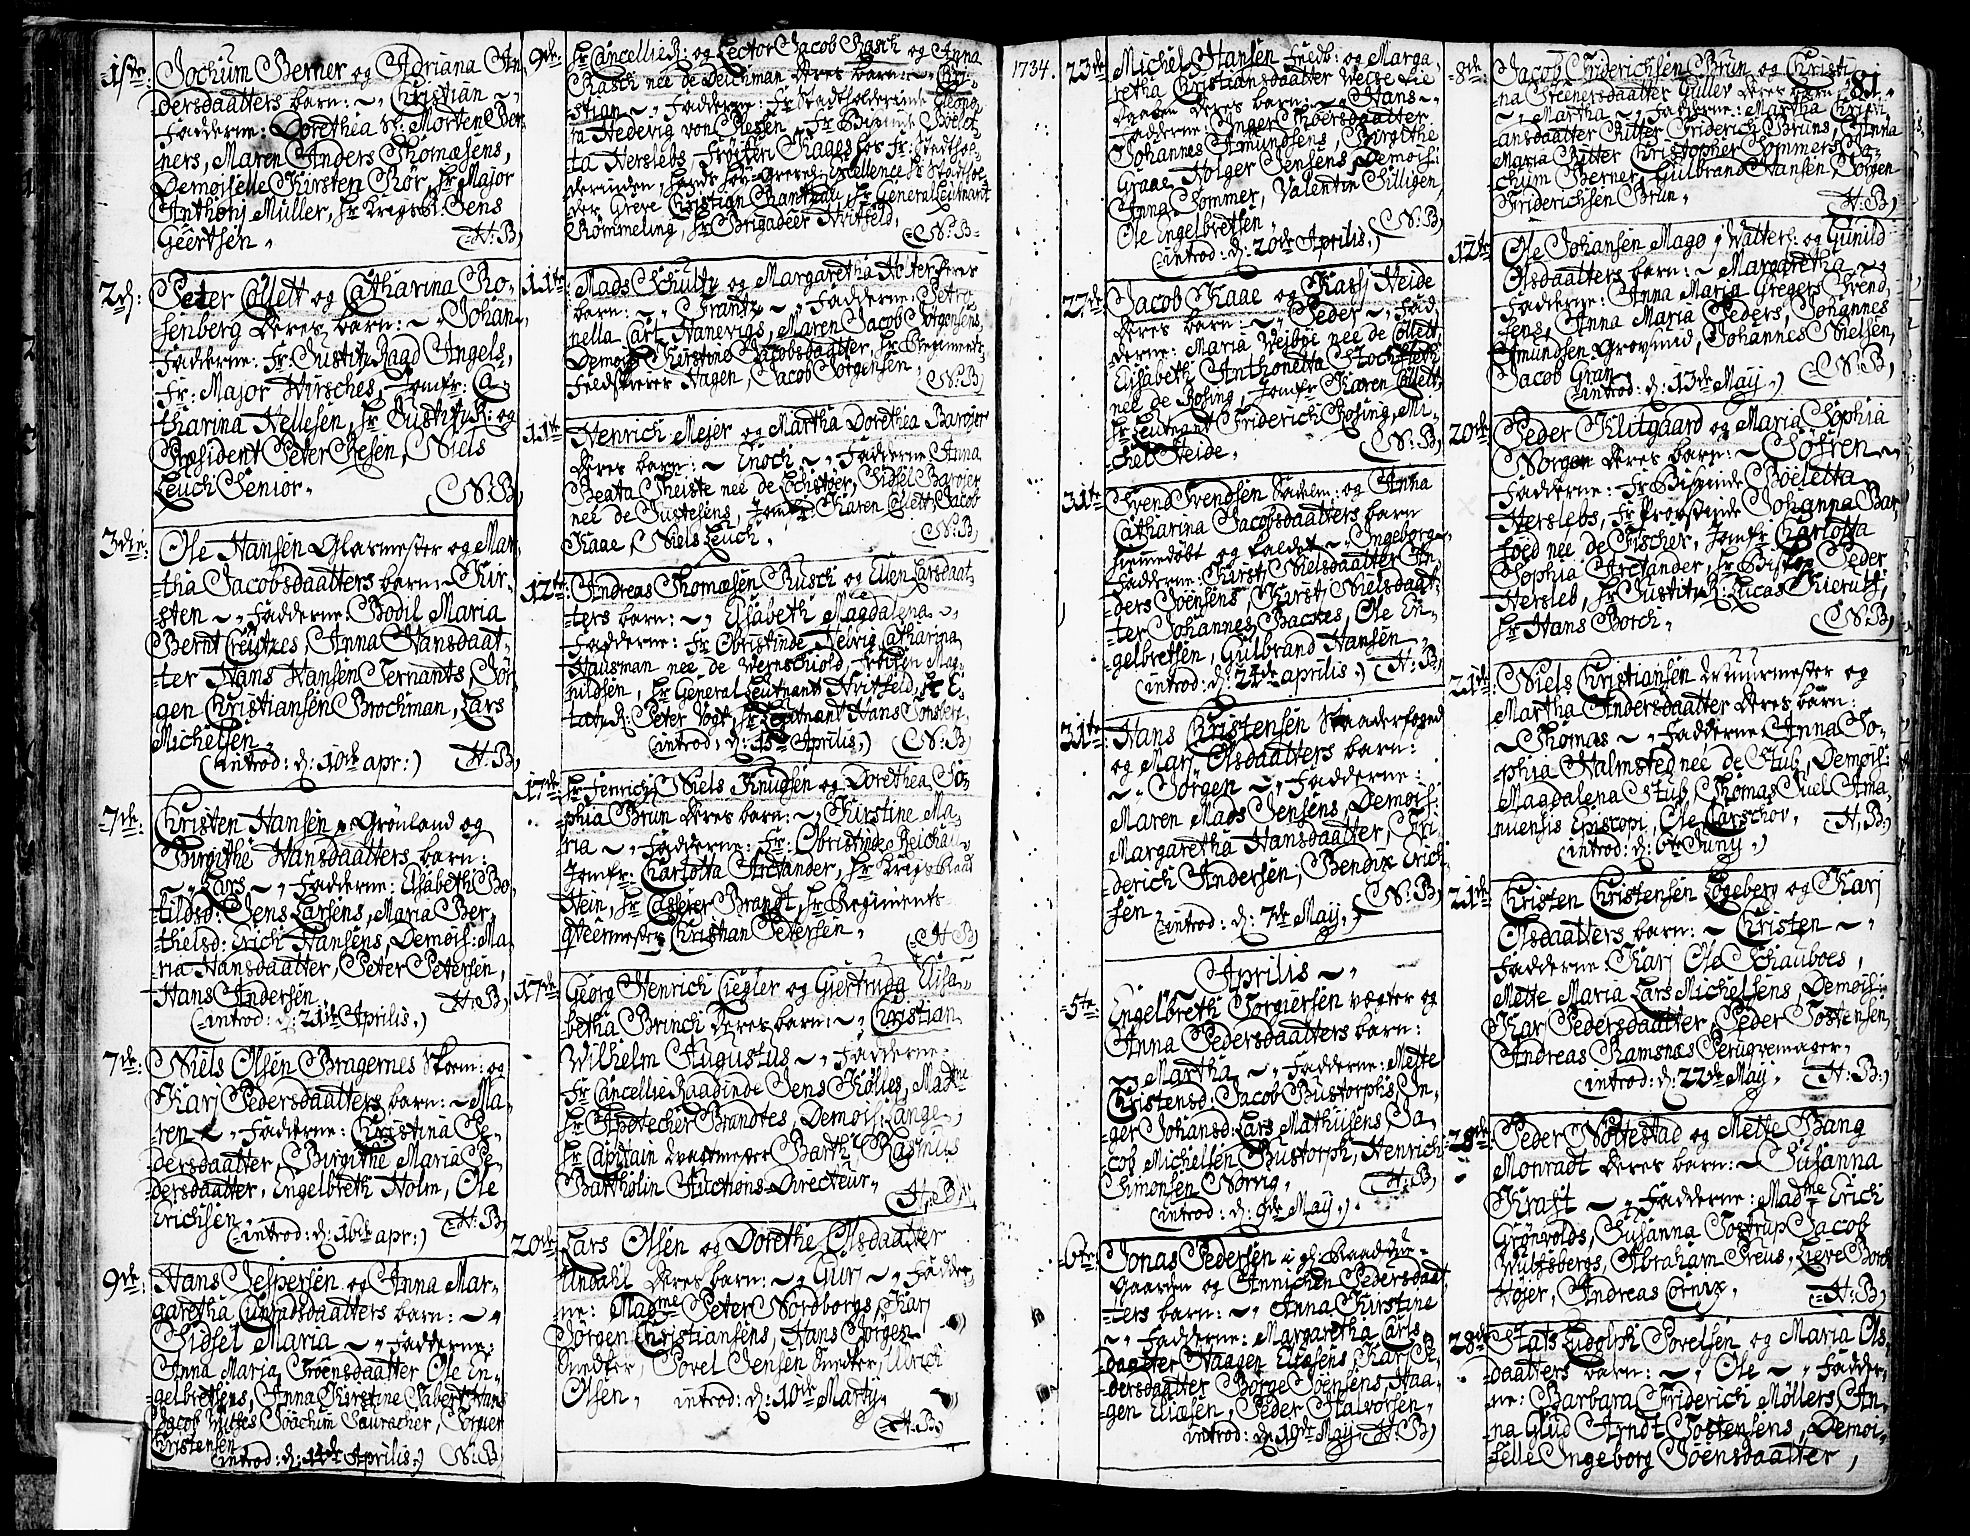 1ste: Jochum Berner og Adriana An-
dersdaatters barn: ~ Christian ~
Fadderne: Dorethea Sl: Morten Ber-
ners, Maren Anders Thomæsens,
Demoiselle Kirsten Rør, Hr Major
Anthonj Müller, Hr Krigsb: Jens
Geertsen.
H:B
2d: Peter Collett og Catharina Ro-
senberg deres barn: ~ Johan
Fadderne: Fr: Justitz Raad Angels,
Fr: Major Hirsches, Jomfr: Ca-
tharina Nellesen, Hr Justitz R: og
Præsident Peter Resen, Niels
Leuch Senior.
N:B
3die: Ole Hansen Glarmester og Mar-
tha Jacobsdaatters barn: ~ Kir-
sten ~ Fadderne: Bodil Maria
Bernt Creutzes, Anna Hansdaat-
ter Hans Hansen Fernants, Jör-
gen Christiansen Brochman, Lars
Michelsen.
(introd: d: 10de apr:) H:B
7de: Christen Hansen, Grönland og
Birgithe Hansdaatters barn:
~ Lars ~ Fadderne: Elsabeth Bo-
tildsd: Jens Larsens, Maria Ber-
thelsd: Erich Hansens, Demois: Ma-
ria Hansdaatter, Peter Petersen,
Hans Andersen
(introd: d: 21de Aprilis.) H:B
7de: Niels Olsen Bragernes Skoem: og
Karj Pedersdaatters barn: ~ Ma-
ren ~ Fadderne: Christina Pe-
dersdaatter, Birgithe Maria Pe-
dersdaatter, Engelbreth Holm, Ole
Erichsen
(introd: d: 16de apr:) H:B
9de: Hans Jespersen og Anna Mar-
garetha Cunradsdaatters barn: ~
Sidsel Maria ~ Fadderne:
Anna Maria Joensdaatter Ole En-
gelbretsens, Anna Kirstine Tabert Hans
Jacob Joachim
Christensen
introd: d: 14de Aprilis.) N:B
9de: Hr CancellieR: og Lector Jacob Rasch og Anna
Rasch nee de Deichman deres barn: ~ Chri-
stian ~ Fadderne: Fr Stadtholderinde Leono-
ra Hedevig von Plesen, Fr Bispinde Böelet-
ta Herslebs, Fröiken Kaages for Fr: Stadthol-
derinden, Hands Höy-Grevel: Excellence Hr Stadthol-
der Greve Christian Rantzau, Hr General Leutnandt
Römmeling, Hr Brigadeer Hvitfeld,
N:B
11te: Mads Schultz og Margaretha Holter deres
barn: ~ Frantz ~ Fadderne: Petro-
nella Carl Hanevigs, Maren Jacob Jörgensens,
Demois: Kirstine Jacobsdaatter, Hr Regiments
Feldskierer Hagen, Jacob Jörgensen
N:B
11te: Henrich Mejer og Martha Dorethea Baröjer
deres barn: ~ Enoch ~ Fadderne Anna
Beata Theiste nee de Lechstöer, Sidsel Baröjer
nee de Justesens, Jomfr: Karen Collett, Jacob
Kaae, Niels Leuch.
N:B
12te: Andreas Thomæsen Rusch og Ellen Larsdaat-
ters barn: ~ Elsabeth Magdalena ~
Fadderne: Fr Obristinde Helvig Catharina
Hausman nee de Wernschiold, Fröiken Mag-
nildsen, Hr General Leutnant Hvitfeld, Hr E-
tatz R: Peter Vogt, Hr Leutnant Hans Tönsberg,
(introd: d: 15de Aprilis.) N:B
17de: Hr Fenrich Niels Knudsen og Dorethea So-
phia Brun deres barn: ~ Kirstine Ma-
ria ~ Fadderne: Fr: Obristinde Reichau
Jomfr: Carlotta Arctander, Hr Krigs Raad
Hein, Hr Casserer Brandt, Hr Regiments
qveermester Christian Petersen.
H:B
17de: Georg Henrich Ziegler og Giertrudg Elisa-
betha Brinch deres barn: ~ Christian
Wilhelm Augustus ~ Fadderne:
Fr Cancellie Raadinde Jens Kölles, Madme
Hr Apotecher Brandtes, Demois: Lange,
Hr Capitain Barth, Rasmus
Bartholin Auctions-Directeur,
H:B
20de: Lars Olsen og Dorethe Olsdaatter
Undahl deres barn: ~ Gurj ~ Fadder-
ne: Madme Peter Nordborgs, Karj
Jörgen Christiansens, Hans Jörgen
Snedker, Povel Jensen Snedker, Ulrich
Olsen. introd: d: 10de Martij.
H:B
1734.
23de Michel Hansen Snedk: og Marga-
retha Christiansdaatter Weise Lie
deres barn: ~ Hans ~
Fadderne: Inger Thoersdaatter
Johannes Amundsens, Birgithe
Graae Holger Jensens, Demois:
Anna Sommer, Valentin Silligen,
Ole Engelbretsen,
(introd: d: 20de Aprilis.) N:B
27de Jacob Kaae og Kasj Heide
deres barn: ~ Peder ~ Fad-
derne: Maria Vejboe nee de Collett
Elisabeth Anthonetta Stochfleth
nee de Rosing, Jomfr: Karen Collett,
Hr Leutnant Friderich Rosing, Mi-
chel Heide,
N:B
31te Svend Svendsen Sadelm: og Anna
Catharina Jacobsdaatters barn
hiemmedöbt og kaldet ~ Ingeborg
Fadderne: Kirst: Nielsdaatter An-
ders Joensens, Karst: Nielsdaat-
ter Johannes Backes, Ole En-
gelbretsen, Gulbrand Hansen
(introd: d: 24de aprilis.) H:B
31te Hans Christensen Staaderfoged
og Marj Olsdaatters barn:
~ Jörgen ~ Fadderne:
Maren Mads Jensens, Demois:
Margaretha Hansdaatter, Fri-
derich Andersen, Bendix Erich-
sen
(introd: d: 7de May.) N:B
Aprilis ~
5te Engelbreth Torgiersen vægter og
Anna Pedersdaatters barn:
~ Martha ~ Fadderne: Mette
Christensd: Jacob Bustorphs, In-
ger Johansd: Lars Mathiisens, Ja-
cob Michelsen Bustorph, Henrich
Simonsen Nörvig,
(introd: d: 9de May.) H:B
6te: Jonas Pedersen i gl: Raadstu-
Gaarden og Annichen Pedersdaat-
ters barn: ~ Anna Kirstine
~ Fadderne: Margaretha Carls-
daatter Haagen Eliæsens, Karj Pe-
dersdaatter Börge Joensens, Haa-
gen Eliæsen, Peder Halvorsen.
introd: d: 19de May. H:B
81.
8de: Jacob Friderichsen Brun og Christi-
na Steenersdaatter Güller deres barn
~ Martha ~ Fadderne: Martha Christi-
ansdaatter Ritter Friderich Bruns, Anna
Maria Ritter Christopher Sommers, Jo-
chum Berner, Gulbrand Hansen, Jörgen
Friderichsen Brun,
H:B
12te Ole Johansen Magö, og Gunild
Olsdaatters barn: ~ Margaretha ~
Fadderne: Anna Maria Gregers Svend-
sens, Anna Maria Peders, Johannes
Amundsen Grovsmed, Johannes Nielsen,
Jacob Gran
(introd: d: 13de May.) N:B
20de Peder Klitgaard og Maria Sophia
Norgen deres barn: ~ Söfren ~
Fadderne: Fr Bispinde Böeletta
Herslebs, Fr Provstinde Johanna Bar-
föed nee de Fischer, Jomfr Charlotta
Sophia Arctander, Hr Bisp Peder
Hersleb, Hr JustitzR: Lucas Kierulf,
Hr Hans Borch.
N:B
21de Niels Christiansen Muurmester og
Martha Andersdaatter deres barn:
~ Thomas ~ Fadderne Anna So-
phia Halmsted nee de Stub, Demois:
Magdalena Stub, Thomas Juel Ama-
nuensis Episcopi, Ole Carschov,
(introd: d: 6te Juny.) H:B:
21de Christen Christensen Lögeberg og Karj
Olsdaatters barn: ~ Christen ~
Fadderne: Karj Ole Schauboes,
Mette Maria Lars Michelsens, Demois:
Karj Pedersdaatter, Peder Tostensen,
Andreas Ramsnæs Peruqvemager.
(introd: d: 22de May. H:B:
28de: Peder Nöttestad og Mette Bang
Monradt deres barn: ~ Susanna
Kraft ~ Fadderne: Madme Erich
Grönvolds, Susanna Tostrup Jacob
Wulfsbergs, Abraham Preus, Lieve Borch
Höjer, Andreas Cornix,
H:B
28de Stats Ludolph Povelsen og Maria Ols-
daatters barn: ~ Ole ~ Fadder-
ne: Barbara Friderich Möllers, An-
na Glud Arndt Tostensens, Demoi-
selle Ingeborg Joensdaatter,